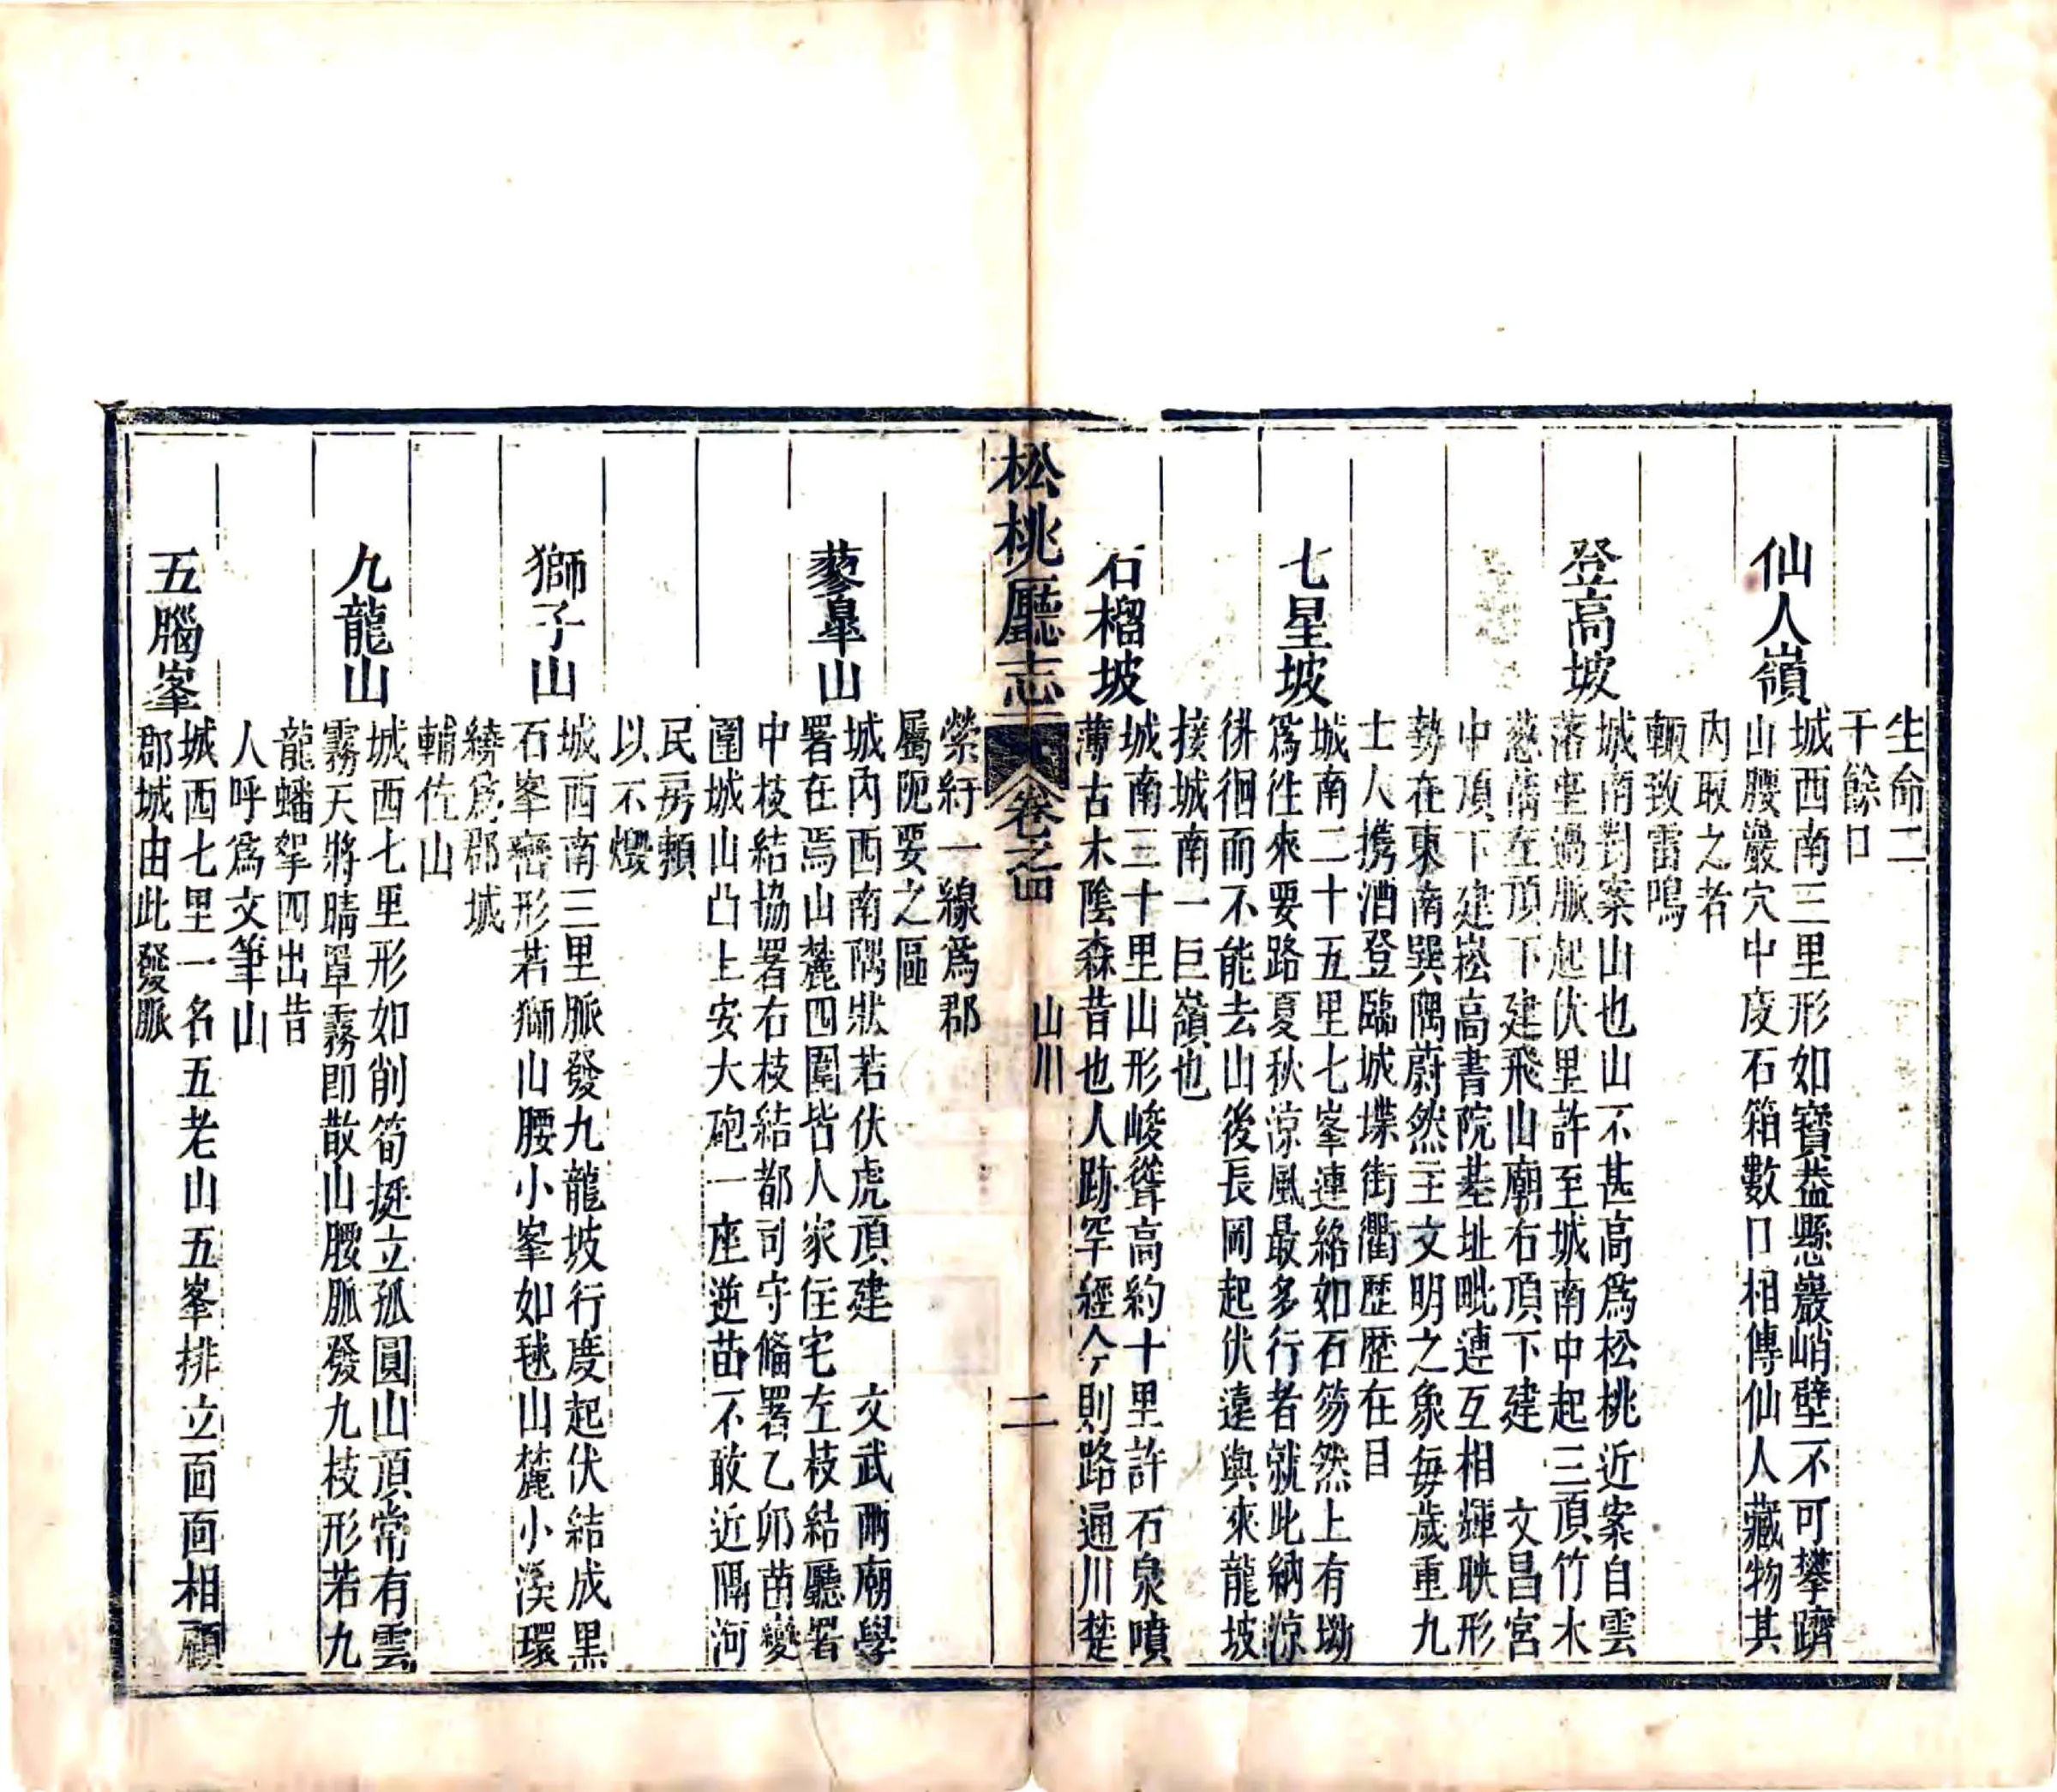 生命二
千餘口
仙人嶺
城西南三里形如寶葢懸巖峭壁不可攀躋
山腰巖穴中庋石箱數口相傳仙人藏物其
內取之者
輒致雷鳴
登高坡
城南對案山也山不甚高爲松桃近案自雲
落屯過脈起伏里許至城南中起三頂竹木
葱蒨在頂下建飛山廟右頂下建 文昌宮
中頂下建崧高書院基址毗連互相輝映形
勢在東南巽隅蔚然主文明之象每歲重九
士人攜酒登臨城堞街衢歷歷在目
七星坡
城南二十五里七峯連絡如石笏然上有坳
爲徃來要路夏秋涼風最多行者就此納涼
徘徊而不能去山後長岡起伏遠與來龍坡
接城南一巨嶺也
石榴坡
城南三十里山形峻聳高約十里許石泉噴
薄古木陰森昔也人跡罕經今則路通川楚
松桃廳志 卷之四 山川 二
縈紆一線爲郡
屬阨要之區
蓼臯山
城內西南隅狀若伏虎頂建 文武兩廟學
署在焉山麓四圍皆人家住宅左枝結廳署
中枝結協署右枝結都司守備署乙卯苗變
圍城山凸上安大砲一座逆苗不敢近隔河
民房賴
以不燬
獅子山
城西南三里脈發九龍坡行度起伏結成黑
石峯巒形若獅山腰小峯如毬山麓小溪環
繞爲郡城
輔佐山
九龍山
城西七里形如削筍挺立孤圓山頂常有雲
霧天將晴罩霧即散山腰脈發九枝形若九
龍蟠拏四出昔
人呼爲文筆山
五腦峯
城西七里一名五老山五峯排立面面相顧
郡城由此發脈